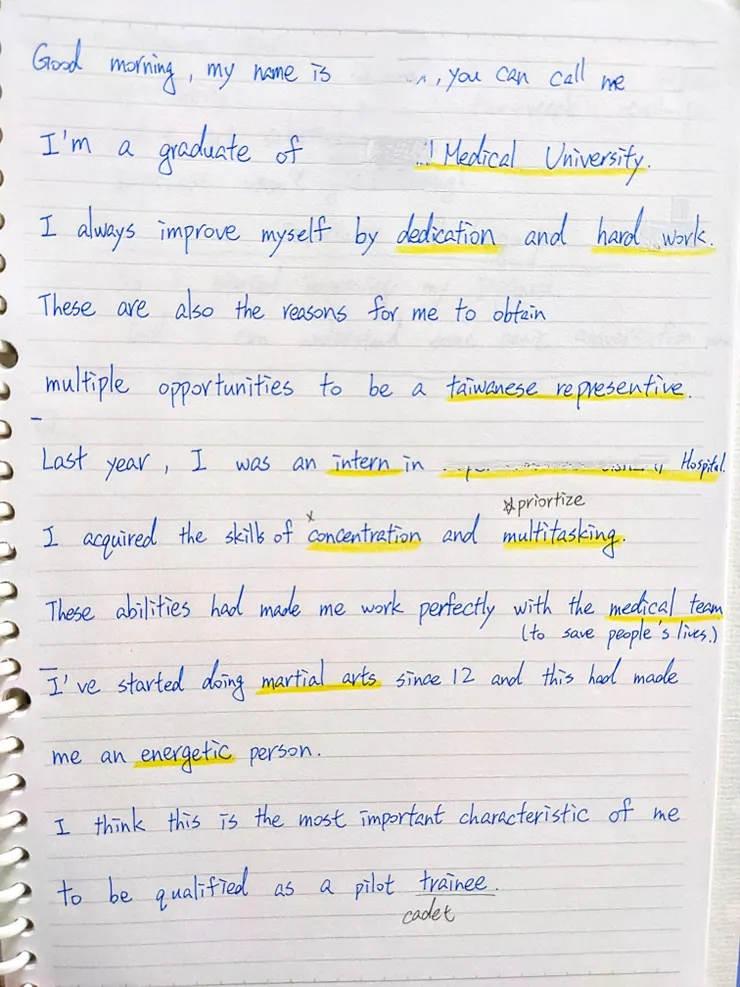 Good morning, my name is , you can call me
I'm a graduate of Medical University.
I always improve myself by dedication and hard work.
These are also the reasons for me to obtain
multiple opportunities to be a taiwanese representive.
Last year, I was an intern in Hospital.
*priortize
I acquired the skills of concentration and multitasking.
These abilities had made me work perfectly with the medical team
(to save people's lives.)
I've started doing martial arts since 12 and this had made
me an energetic person.
I think this is the most important characteristic of me
to be qualified as a pilot trainee.
cadet